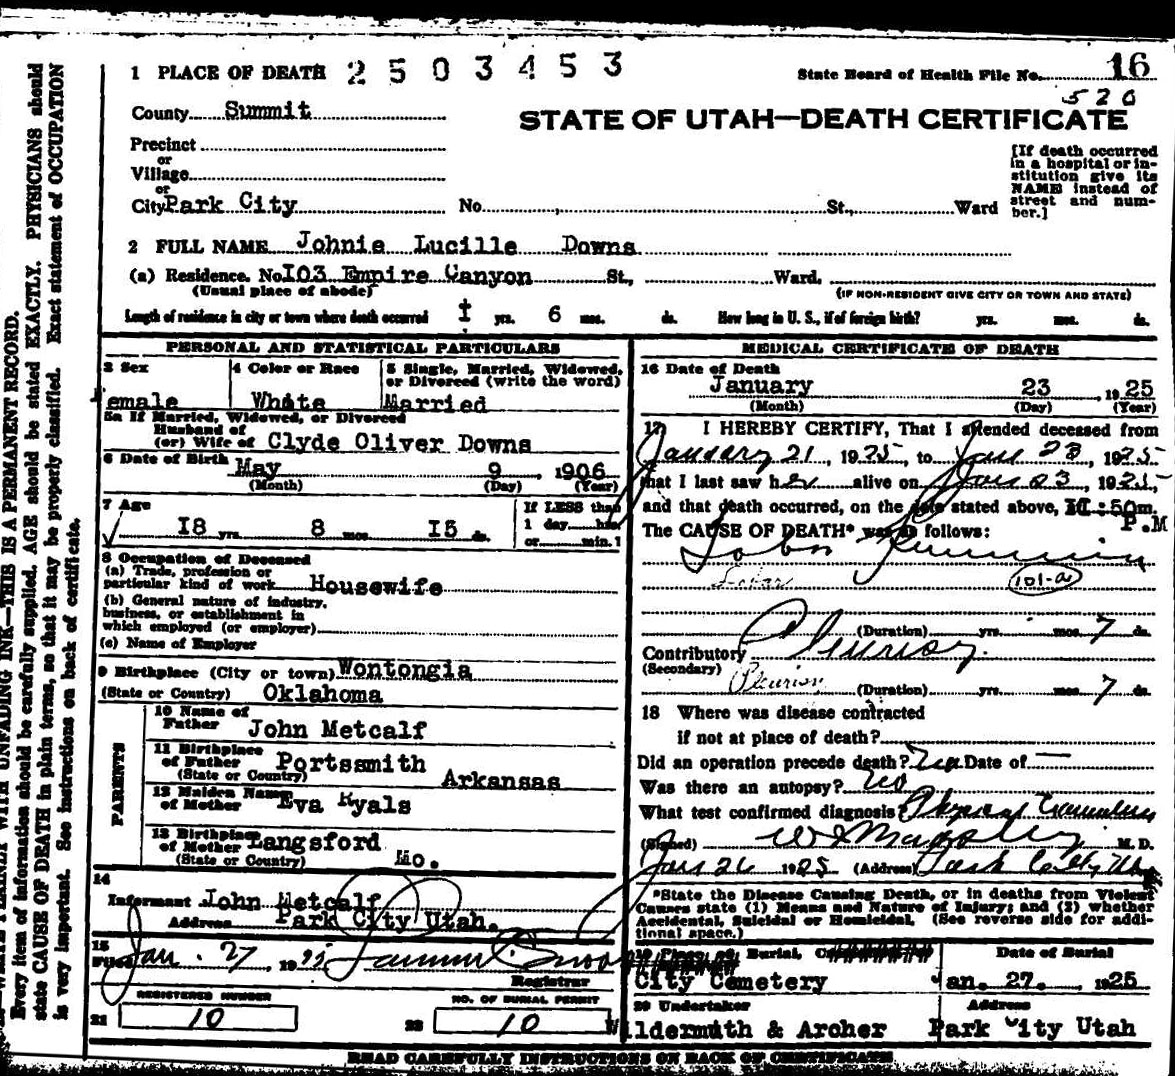 1 PLACE OF DEATH 2503453
State Board of Health File No. 16
520
County Summit
STATE OF UTAH—DEATH CERTIFICATE
Precinct
or
Village
or
City Park City No. St., Ward
[If death occurred
in a hospital or in-
stitution give its
NAME instead of
street and num-
ber.]
2 FULL NAME Johnie Lucille Downs
(a) Residence. No. I03 Empire Canyon St., Ward.
(Usual place of abode) (IF NON-RESIDENT GIVE CITY OR TOWN AND STATE)
Length of residence in city or town where death occurred 1 yrs. 6 mos. ds. How long in U. S., if of foreign birth? yrs. mos. ds.
PERSONAL AND STATISTICAL PARTICULARS
3 Sex
emale
4 Color or Race
White
5 Single, Married, Widowed,
or Divorced (write the word)
Married
5a If Married, Widowed, or Divorced
Husband of
(or) Wife of Clyde Oliver Downs
6 Date of Birth May 9 , 1906
(Month) (Day) (Year)
7 Age
I8 yrs. 8 mos. I5 ds.
If LESS than
1 day hrs.
or min.?
8 Occupation of Deceased
(a) Trade, profession or
particular kind of work Housewife
(b) General nature of industry,
business, or establishment in
which employed (or employer)
(c) Name of Employer
9 Birthplace (City or town) Wontongia
(State or Country) Oklahoma
PARENTS
10 Name of
Father John Metcalf
11 Birthplace
of Father Portssmith
(State or Country) Arkansas
12 Maiden Name
of Mother Eva Ryals
13 Birthplace
of Mother Langsford
(State or Country) Mo.
14
Informant John Metcalf
Address Park City Utah.
15
Filed Jan. 27, 19
Registrar
REGISTERED NUMBER
21 10
NO. OF BURIAL PERMIT
22 10
MEDICAL CERTIFICATE OF DEATH
16 Date of Death
January 23 , 1925
(Month) (Day) (Year)
17 I HEREBY CERTIFY, That I attended deceased from
January 21, 1925, to Jan 23, 1925
that I last saw her alive on Jan 23, 1925,
and that death occurred, on the date stated above, II:50m
P.M
The CAUSE OF DEATH* was as follows:
Lobar Pneumonia
Lobar 101-a
(Duration) yrs. mos. 7 ds.
Contributory Pleurisy
(Secondary)
Pleurisy (Duration) yrs. mos. 7 ds.
18 Where was disease contracted
if not at place of death?
Did an operation precede death? no Date of —
Was there an autopsy? no
What test confirmed diagnosis? Physical Examination
(Signed) M. D.
Jan 26 1925 (Address) Park City, Utah
*State the Disease Causing Death, or in deaths from Violent
Causes state (1) Means and Nature of Injury; and (2) whether
Accidental, Suicidal or Homicidal. (See reverse side for addi-
tional space.)
19 Place of Burial,
City Cemetery
Date of Burial
Jan. 27. , 1925
20 Undertaker
Wildermuth & Archer
Address
Park City Utah
READ CAREFULLY INSTRUCTIONS ON BACK OF CERTIFICATE
WRITE PLAINLY WITH UNFADING INK—THIS IS A PERMANENT RECORD.
Every item of information should be carefully supplied. AGE should be stated EXACTLY. PHYSICIANS should
state CAUSE OF DEATH in plain terms, so that it may be properly classified. Exact statement of OCCUPATION
is very important. See instructions on back of certificate.